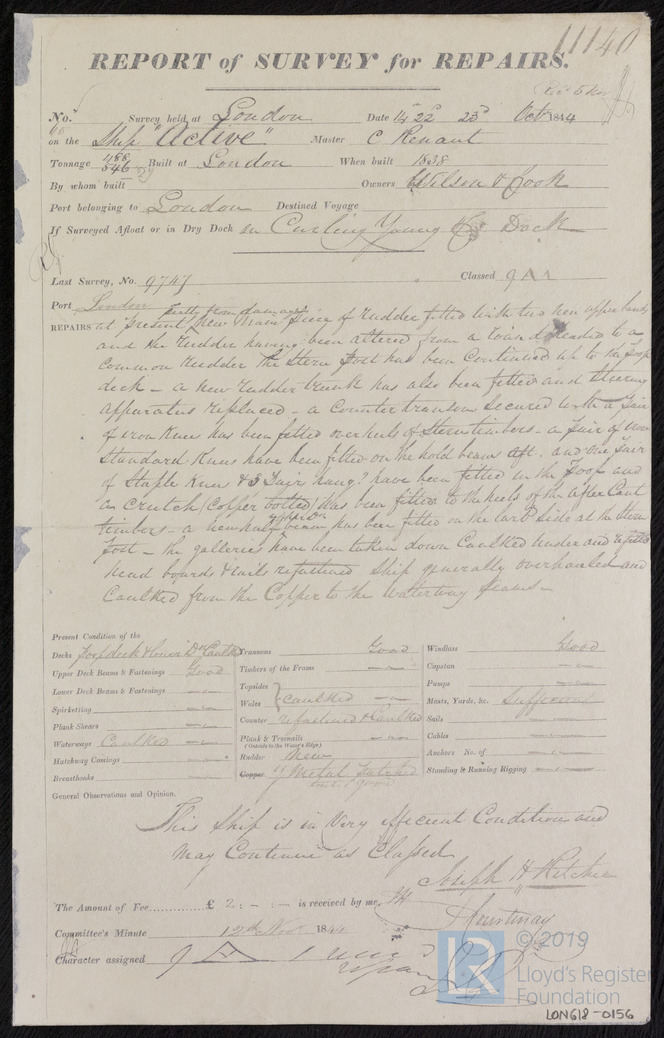 11140
REPORT of SURVEY for REPAIRS.
No. Survey held at London Date 22d 23d Oct 1844
on the Ship "Active" Master C Renaut
Tonnage 488 546 Built at London When built 1838
By whom built Owners Wilson & Cook
Port belonging to London Destined Voyage
If Surveyed Afloat or in Dry Dock in Curling Young & Co Dock
Last Survey, No. 9747 Classed 9 A 1
Port London partly from damage
REPAIRS at present, New Main piece of Rudder fitted with two iron upper bands
and the Rudder having been altered from a round headed to a
common Rudder the Stern Post has been Continued up to the Poop
deck – a new Rudder trunk has also been fitted and Steering
apparatus replaced – a Counter transom Secured with a Pair
of iron Knees has been fitted over heels of Stern timbers – a pair of iron
Standard Knees have been fitted on the hold beams aft. and one Pair
of Staple Knees & 3 Pair hang.g have been fitted in the Poop and
a Crutch (Copper bolted) has been fitted to the heels of the After Cant
timbers – a new half upper Dk beam has been fitted on the larb.d Side at the Stern
Post – the galleries have been taken down Caulked under and refitted
head boards & rails refastened Ship generally overhauled and
Caulked from the Copper to the Waterway Seams –
Present Condition of the
Decks Poop deck & lower Dk Caulked Transoms Good Windlass Good
Upper Deck Beams & Fastenings Good Timbers of the Frame Capstan
Lower Deck Beams & Fastenings Topsides Pumps
Spirketting Wales } caulked Masts, Yards, &c. Sufficient
Plank Shears Counter refastened & Caulked Sails
Waterways Caulked Plank & Treenails Cables
(Outside to the Water's Edge)
Hatchway Comings Rudder New Anchors No. of
Breasthooks Copper Y Metal Patched Standing & Running Rigging
General Observations and Opinion.
This Ship is in Very efficient Condition and
May Continue as Classed
Joseph H Ritchie
The Amount of Fee £ 2 : – : – is received by me,
Courtenay
Committee's Minute 12th Nov 1844
Character assigned 9 A 1
© 2019
LR
Lloyd's Register
Foundation
LON618-0156